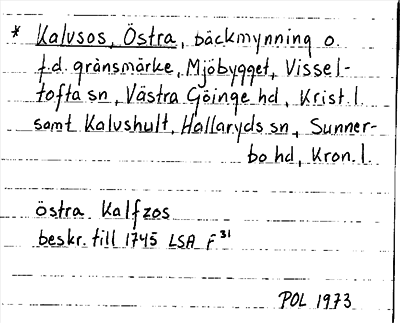 * Kalvsos, Östra, bäckmynning o.
f.d. gränsmärke, Mjöbygget, Vissel-
tofta sn, Västra Göinge hd, Krist. l.
samt Kalvshult, Hallaryds sn, Sunner-
bo hd, Kron. l.
östra Kalfzos
beskr. till 1745 LSA F 31
POL 1973